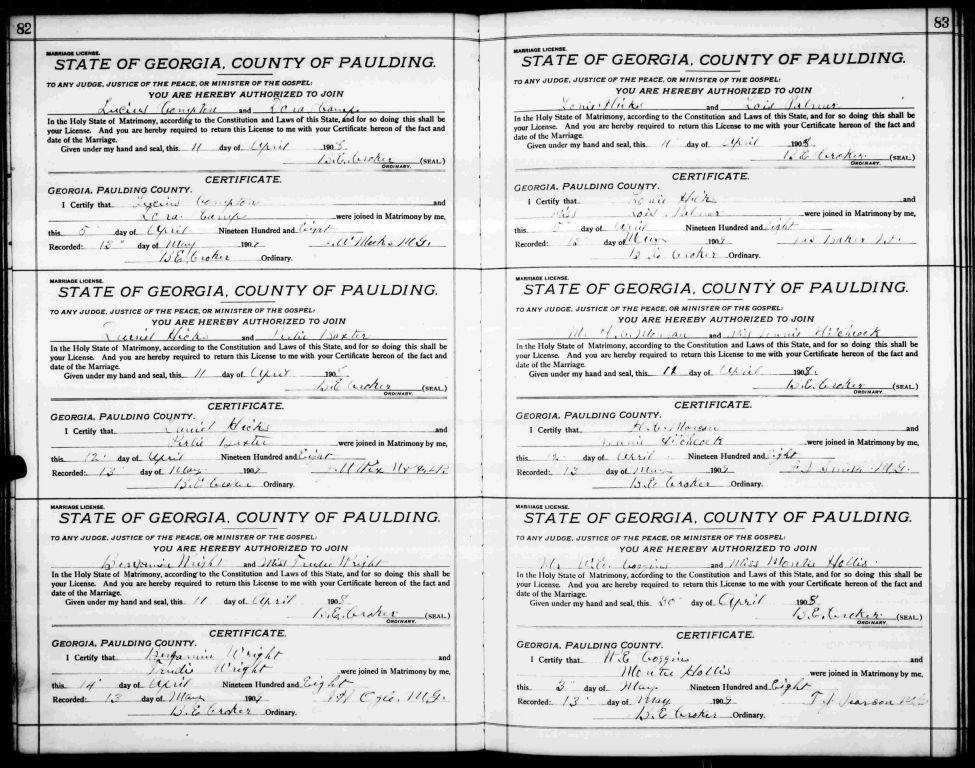 82
MARRIAGE LICENSE.
STATE OF GEORGIA, COUNTY OF PAULDING.
TO ANY JUDGE, JUSTICE OF THE PEACE, OR MINISTER OF THE GOSPEL:
YOU ARE HEREBY AUTHORIZED TO JOIN
Lucius Compton and Lora Camp
In the Holy State of Matrimony, according to the Constitution and Laws of this State, and for so doing this shall be
your License. And you are hereby required to return this License to me with your Certificate hereon of the fact and
date of the Marriage.
Given under my hand and seal, this 11 day of April 1908.
B.E. Croker (SEAL.)
ORDINARY.
CERTIFICATE.
GEORGIA, PAULDING COUNTY.
I Certify that Lucius Compton and
Lora Camp were joined in Matrimony by me,
this 5" day of April Nineteen Hundred and Eight
Recorded: 13" day of May 1909 M.G.
B.E. Croker Ordinary.
MARRIAGE LICENSE.
STATE OF GEORGIA, COUNTY OF PAULDING.
TO ANY JUDGE, JUSTICE OF THE PEACE, OR MINISTER OF THE GOSPEL:
YOU ARE HEREBY AUTHORIZED TO JOIN
Daniel Hicks and Baxter
In the Holy State of Matrimony, according to the Constitution and Laws of this State, and for so doing this shall be
your License. And you are hereby required to return this License to me with your Certificate hereon of the fact and
date of the Marriage.
Given under my hand and seal, this 11 day of April 1908
B.E. Croker (SEAL)
ORDINARY.
CERTIFICATE.
GEORGIA, PAULDING COUNTY.
I Certify that Daniel Hicks and
Baxter were joined in Matrimony by me,
this 12" day of April Nineteen Hundred and Eight
Recorded: 13" day of May 1909
B.E. Croker Ordinary.
MARRIAGE LICENSE.
STATE OF GEORGIA, COUNTY OF PAULDING.
TO ANY JUDGE, JUSTICE OF THE PEACE, OR MINISTER OF THE GOSPEL:
YOU ARE HEREBY AUTHORIZED TO JOIN
Benjamin Wright and Miss Trudie Wright
In the Holy State of Matrimony, according to the Constitution and Laws of this State, and for so doing this shall be
your License. And you are hereby required to return this License to me with your Certificate hereon of the fact and
date of the Marriage.
Given under my hand and seal, this 11 day of April 1908
B.E. Croker (SEAL.)
ORDINARY.
CERTIFICATE.
GEORGIA, PAULDING COUNTY.
I Certify that Benjamin Wright and
Trudie Wright were joined in Matrimony by me,
this 14" day of April Nineteen Hundred and Eight
Recorded: 13 day of May 1909 M.G.
B.E. Croker Ordinary.
83
MARRIAGE LICENSE.
STATE OF GEORGIA, COUNTY OF PAULDING.
TO ANY JUDGE, JUSTICE OF THE PEACE, OR MINISTER OF THE GOSPEL:
YOU ARE HEREBY AUTHORIZED TO JOIN
Hicks and Lois Palmer
In the Holy State of Matrimony, according to the Constitution and Laws of this State, and for so doing this shall be
your License. And you are hereby required to return this License to me with your Certificate hereon of the fact and
date of the Marriage.
Given under my hand and seal, this 11 day of April 1908
B.E. Croker (SEAL)
ORDINARY.
CERTIFICATE.
GEORGIA, PAULDING COUNTY.
I Certify that Hicks and
Miss Lois Palmer were joined in Matrimony by me,
this 5" day of April Nineteen Hundred and Eight
Recorded: 13 day of May 1909 Baker
B.E. Croker Ordinary.
MARRIAGE LICENSE.
STATE OF GEORGIA, COUNTY OF PAULDING.
TO ANY JUDGE, JUSTICE OF THE PEACE, OR MINISTER OF THE GOSPEL:
YOU ARE HEREBY AUTHORIZED TO JOIN
Mr and Miss Hitchcock
In the Holy State of Matrimony, according to the Constitution and Laws of this State, and for so doing this shall be
your License. And you are hereby required to return this License to me with your Certificate hereon of the fact and
date of the Marriage.
Given under my hand and seal, this 11 day of April 1908.
B.E. Croker (SEAL)
ORDINARY.
CERTIFICATE.
GEORGIA, PAULDING COUNTY.
I Certify that and
Hitchcock were joined in Matrimony by me,
this 12" day of April Nineteen Hundred and Eight
Recorded: 13 day of May 1909 Smith M.G.
B.E. Croker Ordinary.
MARRIAGE LICENSE.
STATE OF GEORGIA, COUNTY OF PAULDING.
TO ANY JUDGE, JUSTICE OF THE PEACE, OR MINISTER OF THE GOSPEL:
YOU ARE HEREBY AUTHORIZED TO JOIN
Mr W.E. Coggins and Miss Montie Hollis
In the Holy State of Matrimony, according to the Constitution and Laws of this State, and for so doing this shall be
your License. And you are hereby required to return this License to me with your Certificate hereon of the fact and
date of the Marriage.
Given under my hand and seal, this 30" day of April 1908
B.E. Croker (SEAL.)
ORDINARY.
CERTIFICATE.
GEORGIA, PAULDING COUNTY.
I Certify that W.E Coggins and
Montie Hollis were joined in Matrimony by me,
this 3" day of May Nineteen Hundred and Eight
Recorded: 13" day of May 1909 T.J. Pearson
B.E. Croker Ordinary.